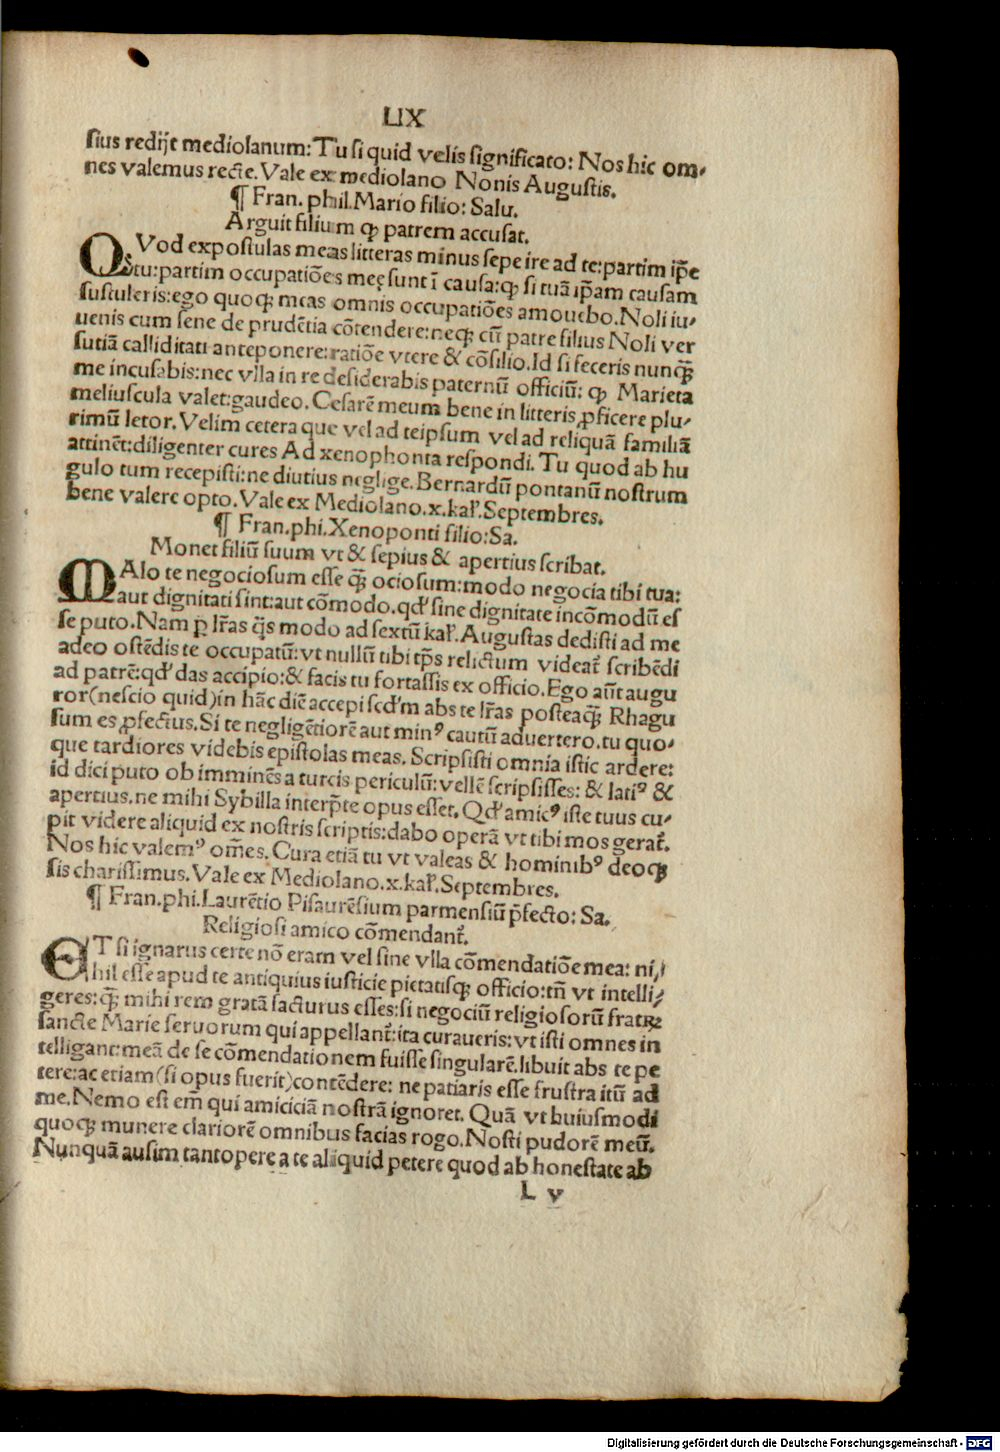 LIX
sius redijt mediolanum: Tu si quid velis significato: Nos hic om-
nes valemus recte. Vale ex mediolano Nonis Augustis.
¶ Fran. phil. Mario filio: Salu.
Arguit filium ꝙ patrem accusat.
QVod expostulas meas litteras minus sepe ire ad te: partim ip̄e
es tu: partim occupatiões meę sunt ī causa: ꝙ si tuā ip̄am causam
sustuleris: ego quoqꝫ meas omnis occupatiões amouebo. Noli iu-
uenis cum sene de prudētia cōtendere: neqꝫ cū patre filius Noli ver
sutiā calliditati anteponere: ratiōe vtere & cōsilio. Id si feceris nunqꝫ̄
me incusabis: nec vlla in re desiderabis paternū officiū: ꝙ Marieta
meliuscula valet: gaudeo. Cesarē meum bene in litteris ꝓficere plu-
rimū letor. Velim cetera que vel ad teipsum vel ad reliquā familiā
attinēt: diligenter cures Ad xenophonta respondi. Tu quod ab hu
gulo tum recepisti: ne diutius neglige. Bernardū pontanū nostrum
bene valere opto. Vale ex Mediolano. x. kał. Septembres.
¶ Fran. phi. Xenoponti filio: Sa.
Monet filiū suum vt & sepius & apertius scribat.
MAlo te negociosum esse qꝫ̄ ociosum: modo negocia tibi tua:
aut dignitati sint: aut cōmodo. qd' sine dignitate incōmodū es
se puto. Nam p lr̄as q̄s modo ad sextū kał. Augustas dedisti ad me
adeo ostēdis te occupatū: vt nullū tibi tp̄s relictum videat̄ scribēdi
ad patrē: qd' das accipio: & facis tu fortassis ex officio. Ego aūt augu
ror (nescio quid) in hāc diē accepi scd'm abs te lr̄as posteaqꝫ̄ Rhagu
sum es ꝓfectus. Si te negligētiorē aut minꝰ cautū aduertero. tu quo-
que tardiores videbis epistolas meas. Scripsisti omnia istic ardere:
id dici puto ob imminēs a turcis periculū: vellē scripsisses: & latiꝰ &
apertius. ne mihi Sybilla interp̄te opus esset. Qd' amicꝰ iste tuus cu-
pit videre aliquid ex nostris scriptis: dabo operā vt tibi mos gerat̄.
Nos hic valemꝰ om̄es. Cura etiā tu vt valeas & hominibꝰ deoqꝫ
sis charissimus. Vale ex Mediolano. x. kał. Septembres.
¶ Fran. phi. Laurētio Pisaurēsium parmensiū p̄fecto: Sa.
Religiosi amico cōmendant̄.
ET si ignarus certe nō eram vel sine vlla cōmendatiōe mea: ni-
hil esse apud te antiquius iusticie pietatisqꝫ officio: tn̄ vt intelli-
geres: qꝫ̄ mihi rem gratā facturus esses: si negociū religiosorū fratrꝝ
sancte Marie seruorum qui appellant̄: ita curaueris: vt isti omnes in
telligant: meā de se cōmendationem fuisse singularē. libuit abs te pe
tere: ac etiam (si opus fuerit) contēdere: ne patiaris esse frustra itū ad
me. Nemo est em̄ qui amiciciā nostrā ignoret. Quā vt huiusmodi
quoqꝫ munere clariorē omnibus facias rogo. Nosti pudorē meū.
Nunquā ausim tantopere a te aliquid petere quod ab honestate ab
L v
Digitalisierung gefördert durch die Deutsche Forschungsgemeinschaft - DFG